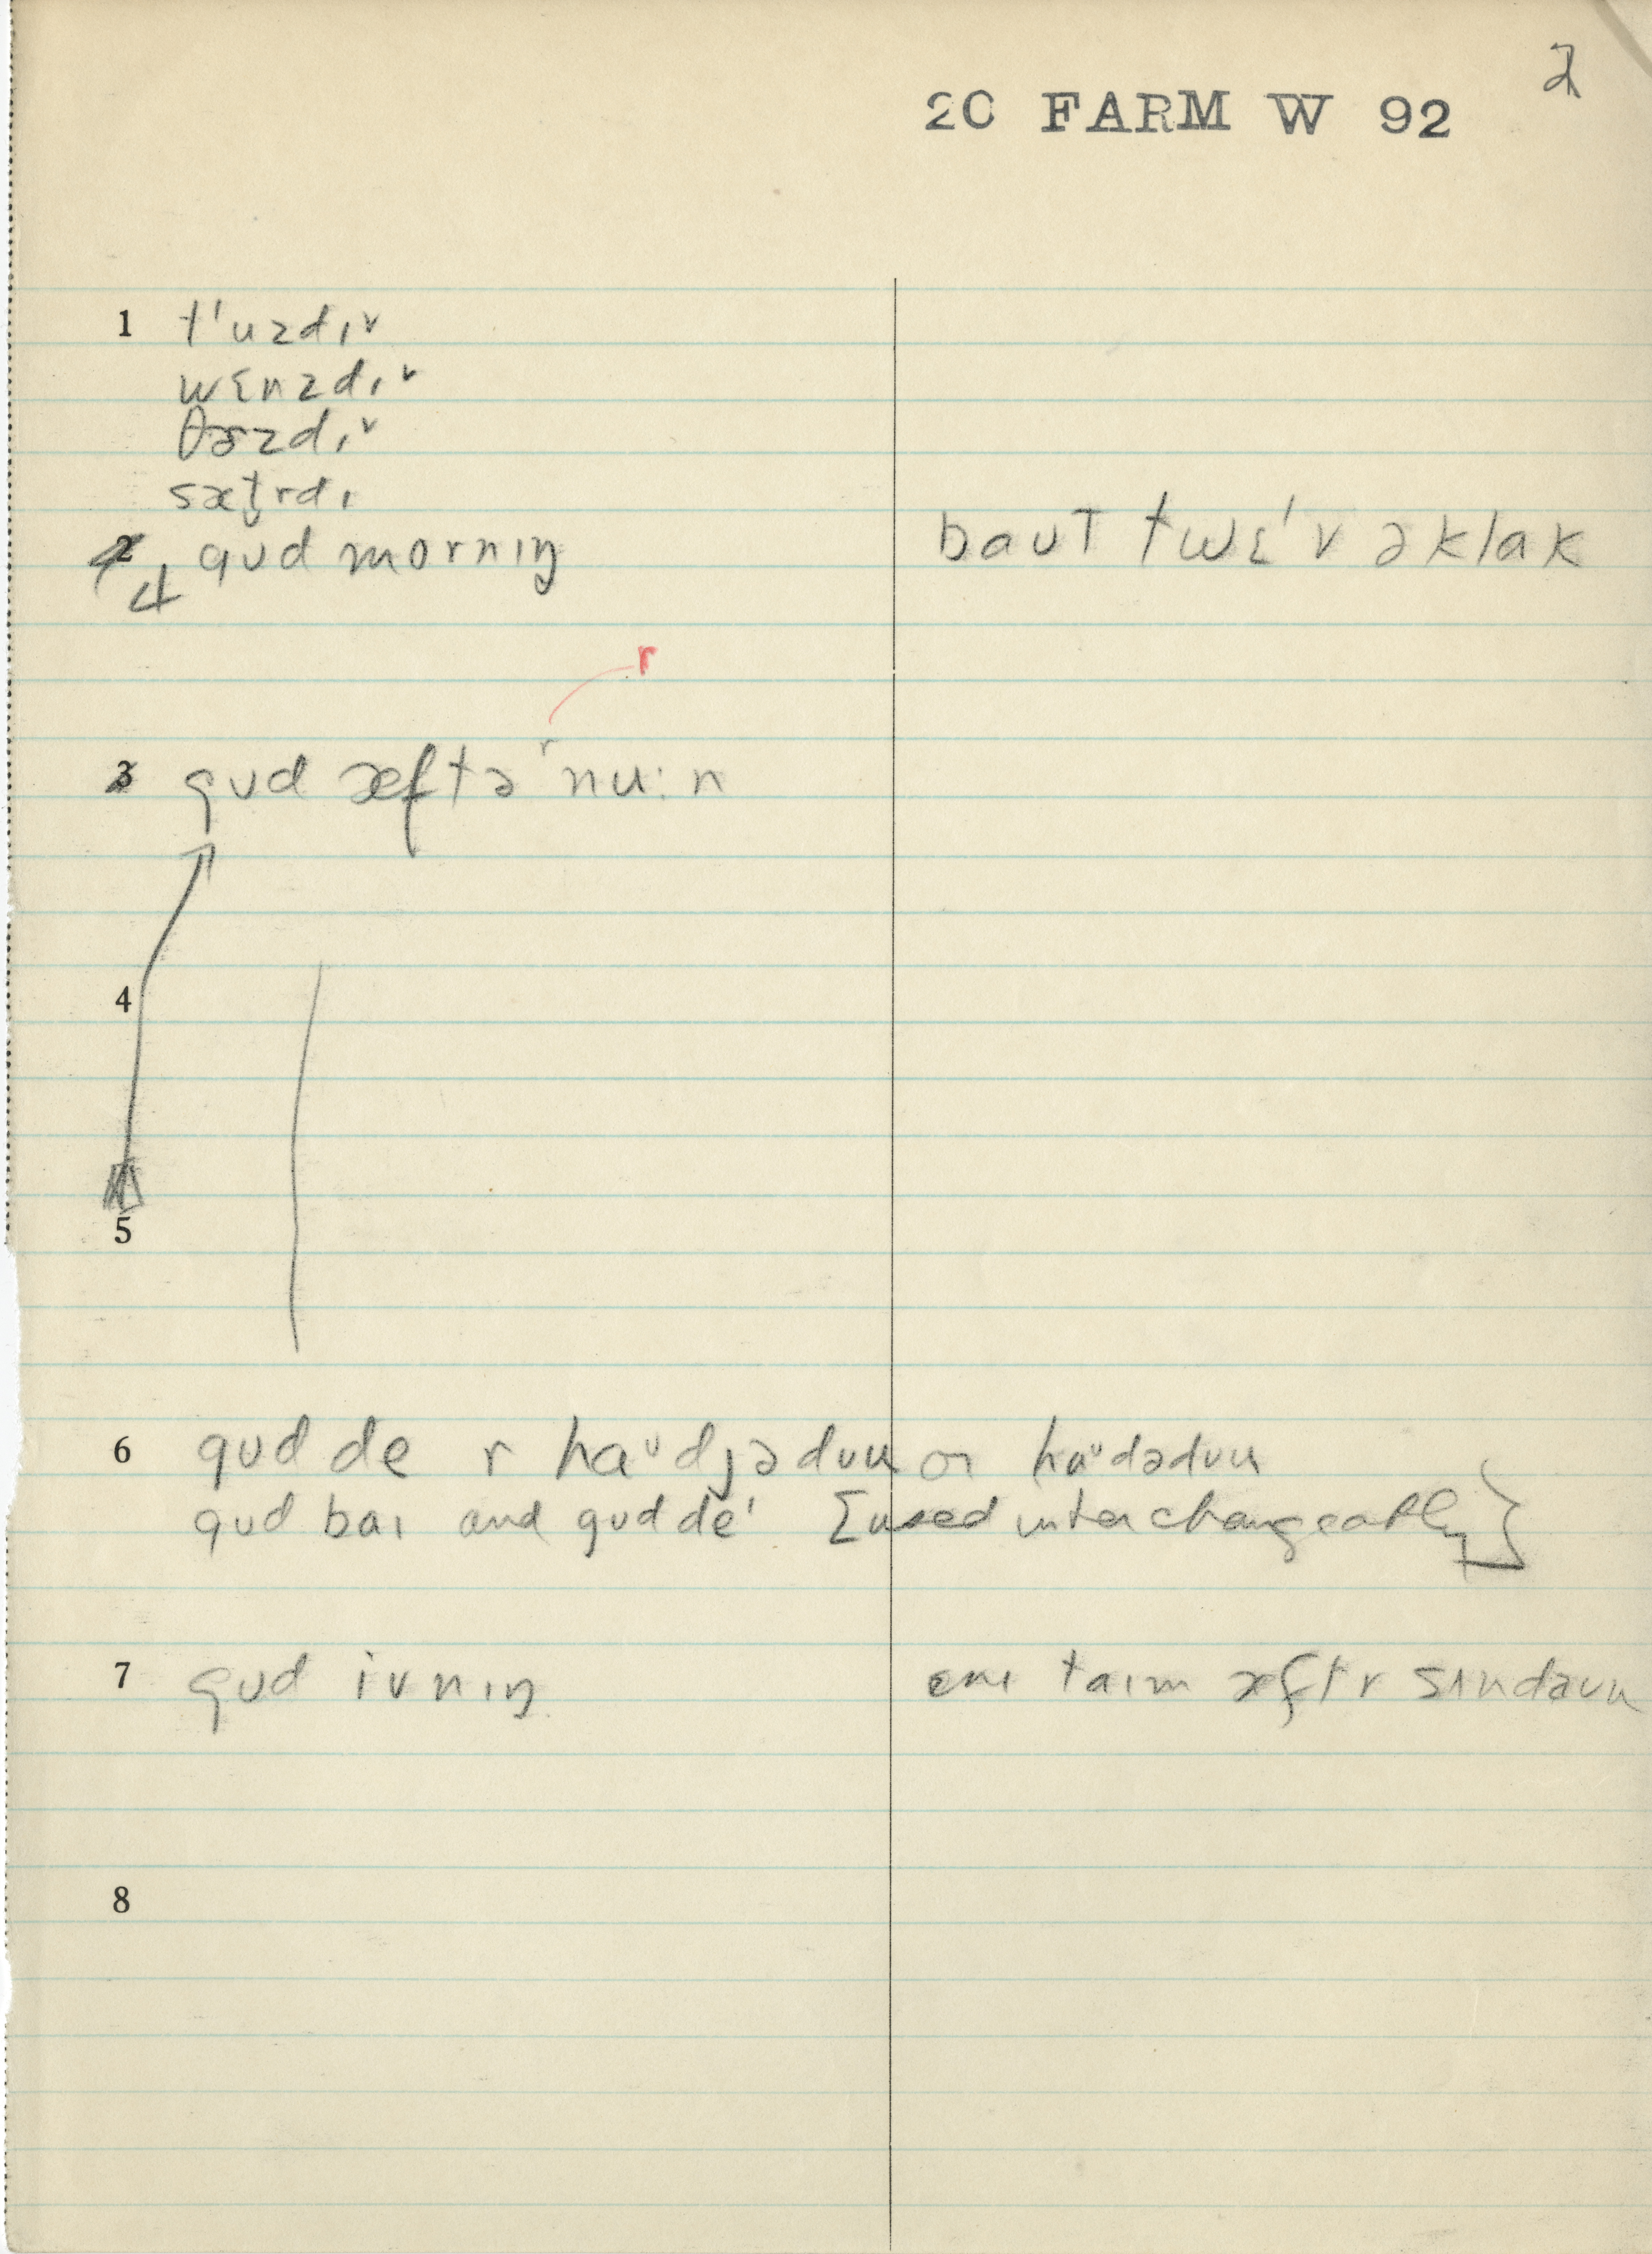 2
20 FARM W 92
1 tˈuzdɪ˅
wɛnzdɪ˅
θɝzdɪ˅
sæt̬rdɪ
2 4 gʊd mornɪŋ baʊt twɛˈv əklak
r
3 gʊd æftəʳnu:n
4
5
6 gʊd de r haᶸdjədʊu or haᶸdədʊu
gʊd baɪ and gʊd deˈ [used interchangeably]
7 gʊd ivnɪŋ ɛnɪ taɪm æftr sʌndaʊn
8